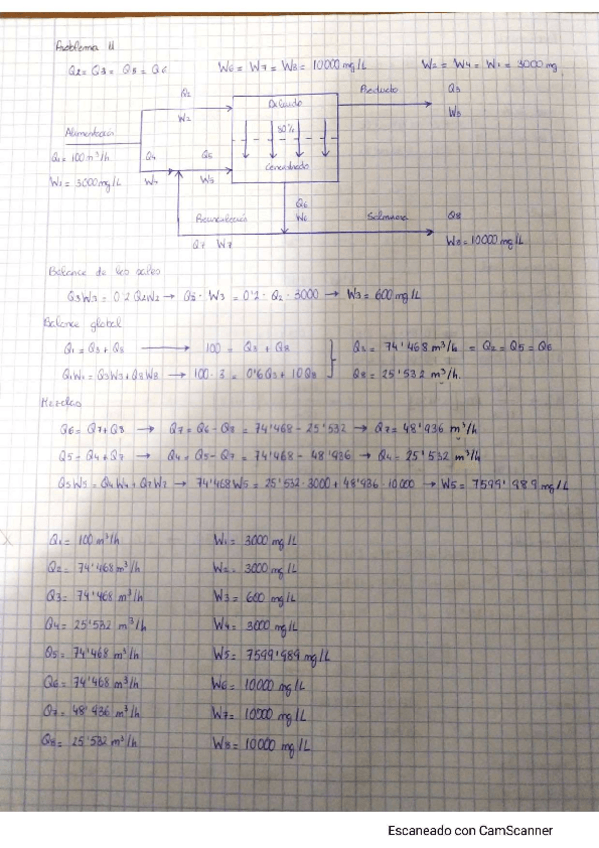 Problema 11
Q2 = Q3 = Q5 = Q6 W6 = W7 = W8 = 10000 mg/L W2 = W4 = W1 = 3000 mg
Q2
W2
Diluido
Producto
Q3
W3
Alimentación
Q1 = 100 m³/h
W1 = 3000 mg/L
Q4
W4
Q5
W5
80%
Concentrado
Q6
W6
Recirculación
Q7 W7
Salmuera
Q8
W8 = 10000 mg/L
Balance de las sales
Q3W3 = 0'2 Q2W2 → Q3 · W3 = 0'2 · Q2 · 3000 → W3 = 600 mg/L
Balance global
Q1 = Q3 + Q8 → 100 = Q3 + Q8
Q2 = 74'468 m³/h = Q2 = Q5 = Q6
Q1W1 = Q3W3 + Q8W8 → 100 · 3 = 0'6Q3 + 10Q8
Q8 = 25'532 m³/h.
Mezclas
Q6 = Q7 + Q8 → Q7 = Q6 - Q8 = 74'468 - 25'532 → Q7 = 48'936 m³/h
Q5 = Q4 + Q7 → Q4 = Q5 - Q7 = 74'468 - 48'936 → Q4 = 25'532 m³/h
Q5W5 = Q4W4 + Q7W7 → 74'468W5 = 25'532 · 3000 + 48'936 · 10000 → W5 = 7599'989 mg/L
Q1 = 100 m³/h W1 = 3000 mg/L
Q2 = 74'468 m³/h W2 = 3000 mg/L
Q3 = 74'468 m³/h W3 = 600 mg/L
Q4 = 25'532 m³/h W4 = 3000 mg/L
Q5 = 74'468 m³/h W5 = 7599'989 mg/L
Q6 = 74'468 m³/h W6 = 10000 mg/L
Q7 = 48'936 m³/h W7 = 10000 mg/L
Q8 = 25'532 m³/h W8 = 10000 mg/L
Escaneado con CamScanner